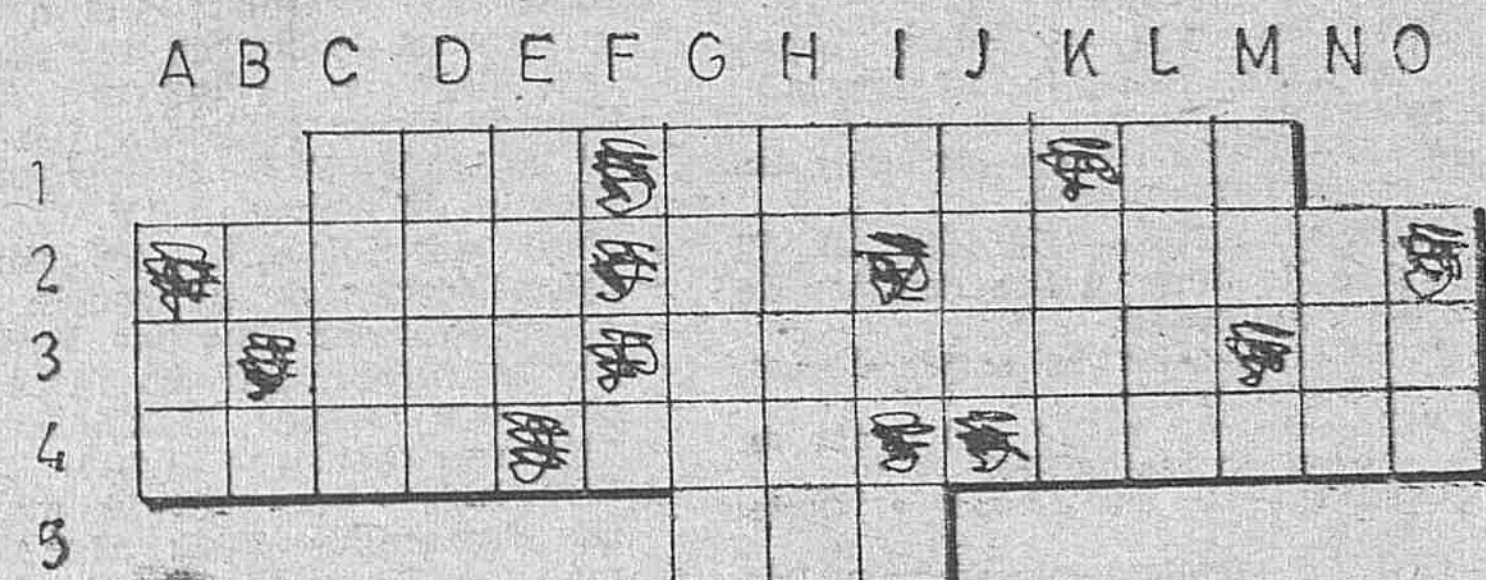 A B C D E F G H I J K L M N O
1
2
3
4
5